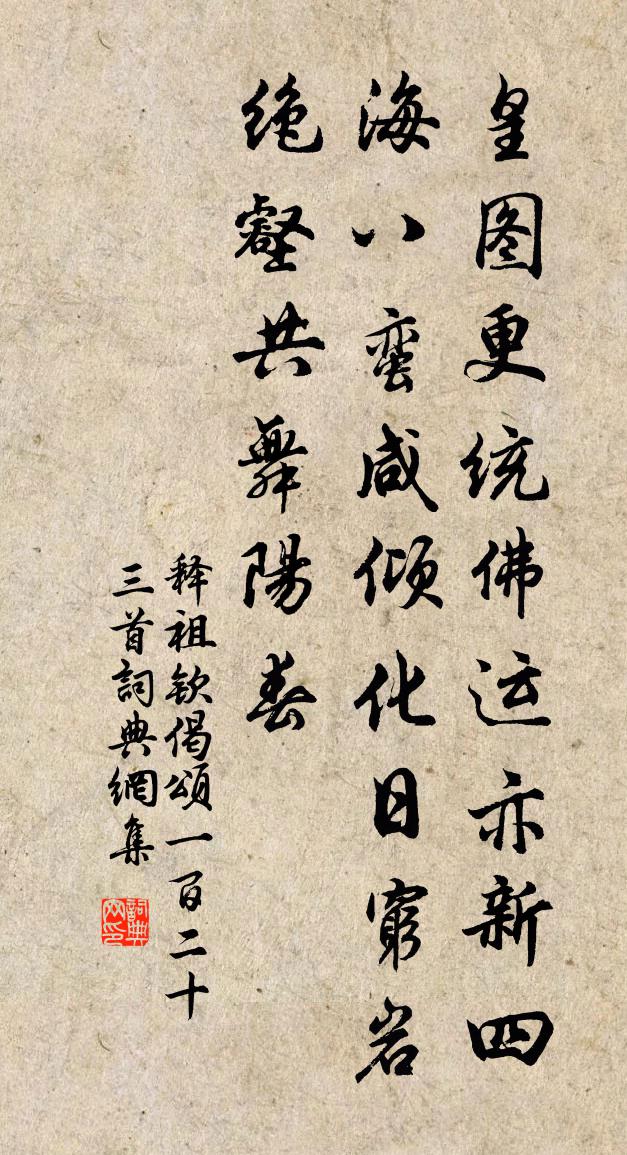 皇图更统佛运亦新四
海八蛮咸倾化日穷岩
绝壑共舞陽春
释祖钦偈頌一百二十
三首詞典網集
詞典
网印